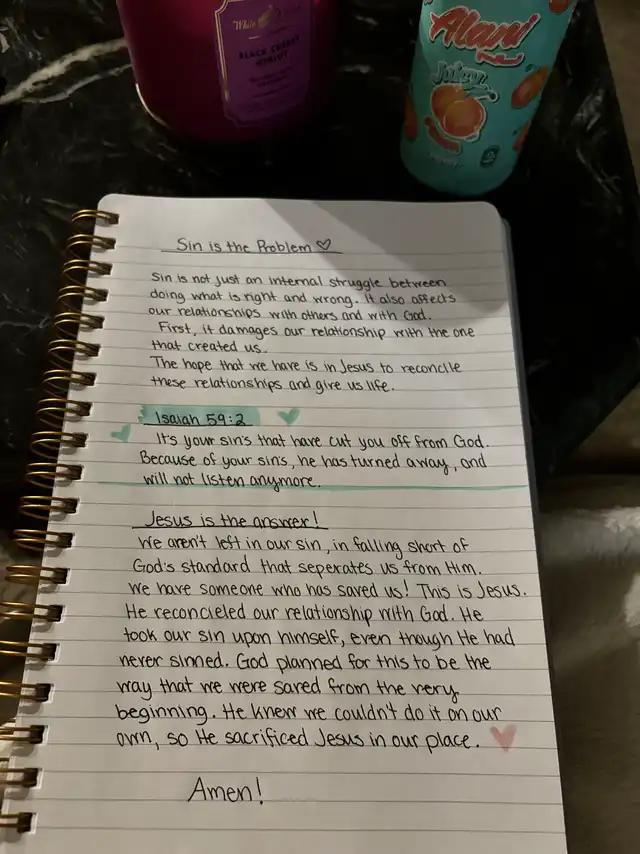 White
BLACK CHERRY
MERLOT
Alani
Juicy
Sin is the Problem ♡
Sin is not just an internal struggle between
doing what is right and wrong. It also affects
our relationships with others and with God.
First, it damages our relationship with the one
that created us.
The hope that we have is in Jesus to reconcile
these relationships and give us life.
Isaiah 59:2
It's your sins that have cut you off from God.
Because of your sins, he has turned away, and
will not listen anymore.
Jesus is the answer!
We aren't left in our sin, in falling short of
God's standard that seperates us from Him.
We have someone who has saved us! This is Jesus.
He reconcieled our relationship with God. He
took our sin upon himself, even though He had
never sinned. God planned for this to be the
way that we were saved from the very
beginning. He knew we couldn't do it on our
own, so He sacrificed Jesus in our place.
Amen!